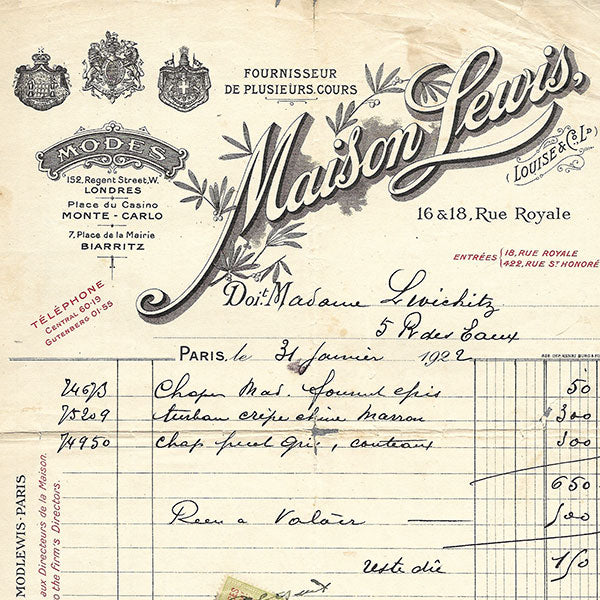 FOURNISSEUR
DE PLUSIEURS.COURS
Maison Lewis,
(LOUISE & Cº Lᴰ)
16 & 18, Rue Royale
ENTRÉES { 18, RUE ROYALE
422, RUE Sᵀ HONORÉ
MODES
152, Regent Street, W.
LONDRES
Place du Casino
MONTE-CARLO
7, Place de la Mairie
BIARRITZ
TÉLÉPHONE
CENTRAL 60-19
GUTENBERG 01-55
Doit Madame
5 R des Eaux
PARIS, le 31 Janvier 1922
74673 Chapeau Mad. gris 50
75209 turban crêpe chine Marron 300
74950 chap gris, couteaux 300
650
500
reste dû 150
MODLEWIS-PARIS
aux Directeurs de la Maison.
to the firm's Directors.